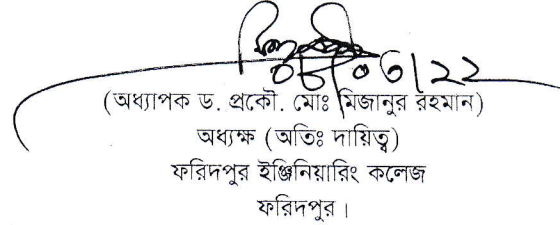 ০৮/০৩/২২
(অধ্যাপক ড. প্রকৌ. মোঃ মিজানুর রহমান)
অধ্যক্ষ (অতিঃ দায়িত্ব)
ফরিদপুর ইঞ্জিনিয়ারিং কলেজ
ফরিদপুর।